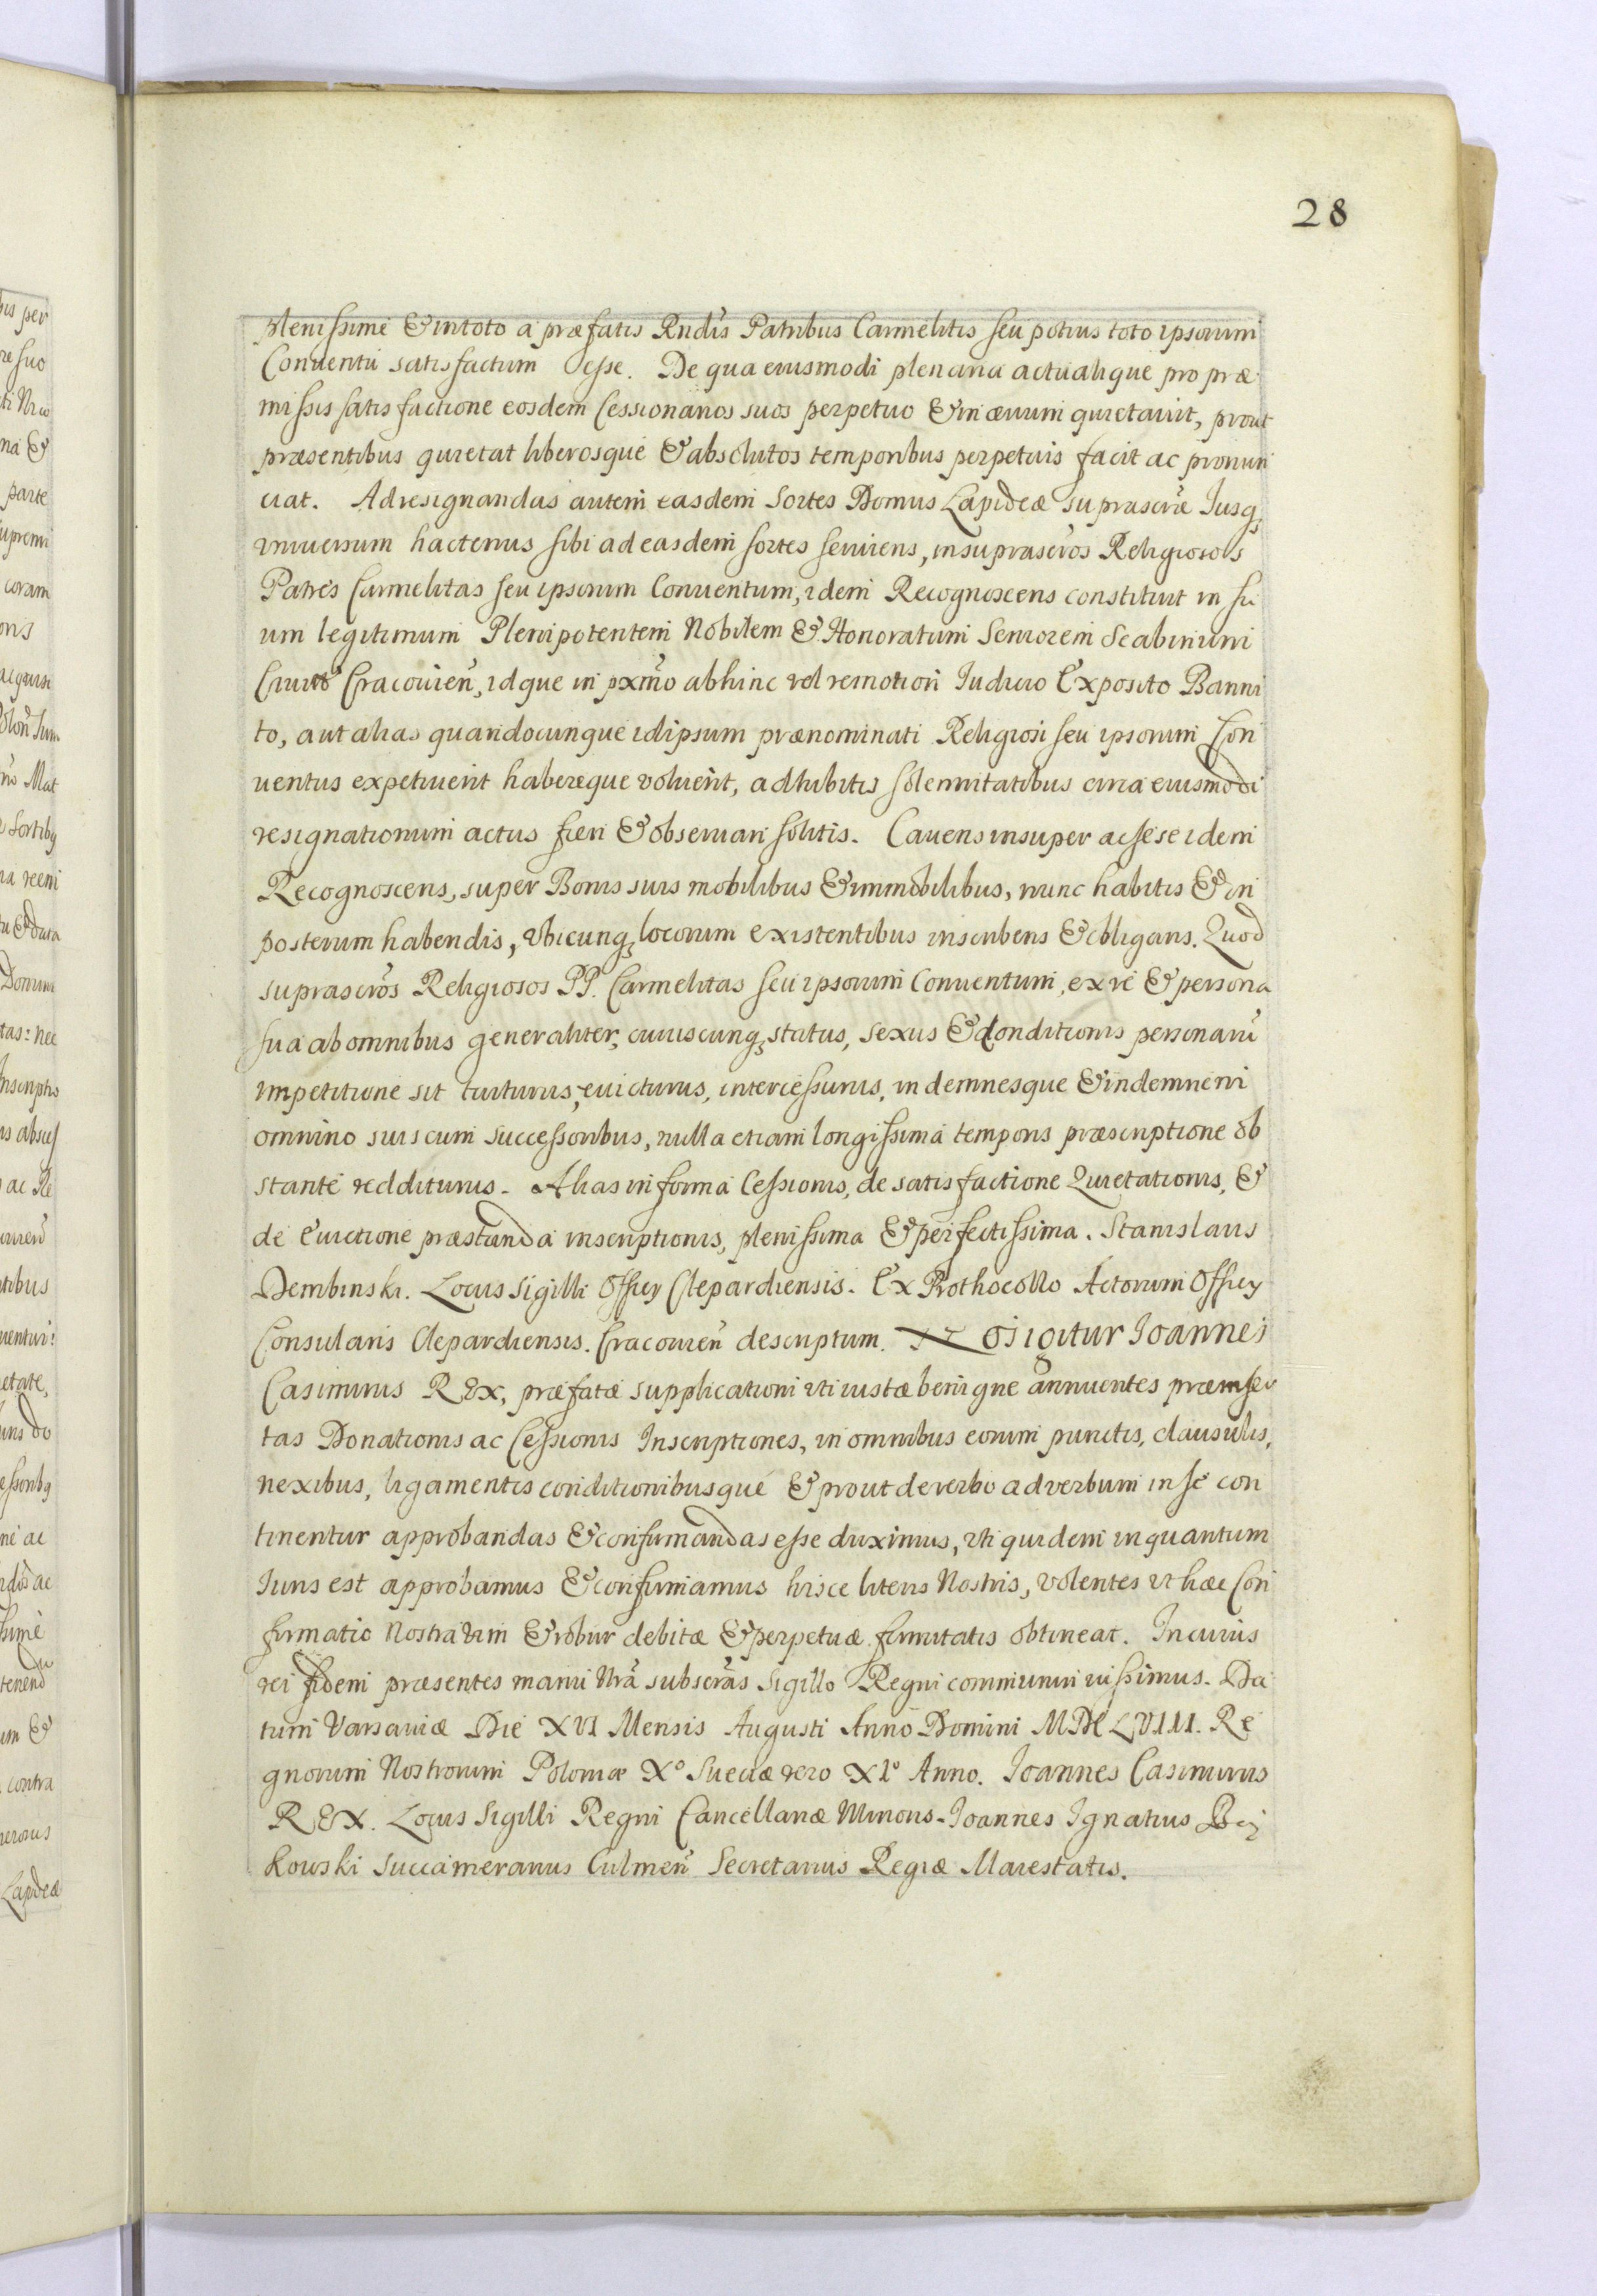 28
plenissime & in toto a præfatis Rndis Patribus Carmelitis seu potius toto ipsorum
Conuentu satisfactum esse. De qua eiusmodi plenaria actualique pro præ
missis satisfactione eosdem Cessionarios suos perpetuo & in æuum quietauit, prout
præsentibus quietat liberosque & absolutos temporibus perpetuis facit ac pronun
ciat. Ad resignandas autem easdem Sortes Domus Lapideæ suprascræ Iusq
vniuersum hactenus sibi ad easdem sortes seruiens, in suprascros Religiosos
Patres Carmelitas seu ipsorum Conuentum, idem Recognoscens constituit in su
um legitimum Plenipotentem Nobilem & Honoratum Seniorem Scabinum
Ciuitis Cracouien, idque in pxmo abhinc vel remotiori Iudicio Exposito Banni
to, aut alias quandocunque idipsum prænominati Religiosi seu ipsorum Con
uentus expetiuerit habereque voluerit, adhibitis solennitatibus circa eiusmodi
resignationum actus fieri & obseruari solitis. Cauens insuper ac sese idem
Recognoscens, super Bonis suis mobilibus & immobilibus, nunc habitis & in
posterum habendis, vbicunq locorum existentibus inscribens & obligans. Quod
suprascros Religiosos PP. Carmelitas seu ipsorum Conuentum, ex re & persona
sua ab omnibus generaliter, cuiuscunq status, sexus & conditionis personaru
impetitione sit tuiturus, euicturus, intercessurus, indemnesque & indemnem
omnino suis cum successoribus, nulla etiam longissima temporis præscriptione ob
stante redditurus. Alias in forma Cessionis, de satisfactione Quietationis, &
de Euictione præstanda inscriptionis, plenissima & perfectissima. Stanislaus
Dembinski. Locus Sigilli Officy Clepardiensis. Ex Prothocollo Actorum Officy
Consularis Clepardiensis. Cracouien descriptum. Nos igitur Ioannes
Casimirus REX, præfatæ supplicationi vti iustæ benigne annuentes præinser
tas Donationis ac Cessionis Inscriptiones, in omnibus eorum punctis, clausulis,
nexibus, ligamentis conditionibusque & prout de verbo ad verbum in se con
tinentur approbandas & confirmandas esse duximus, vti quidem in quantum
Iuris est approbamus & confirmamus hisce literis Nostris, volentes vt hæc Con
firmatio Nostra vim & robur debitæ & perpetuæ firmitatis obtineat. In cuius
rei fidem præsentes manu Nrã subscrãs Sigillo Regni communiri iussimus. Da
tum Varsauiæ Die XVI Mensis Augusti Anno Domini MDCLVIII. Re
gnorum Nostrorum Poloniæ X° Sueciæ vero XI° Anno. Ioannes Casimirus
REX. Locus Sigilli Regni Cancellariæ Minoris. Ioannes Ignatius
kowski Succamerarius Culmen Secretarius Regiæ Maiestatis.